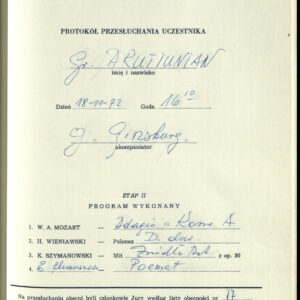 PROTOKÓŁ PRZESŁUCHANIA UCZESTNIKA
Gr. ARUTIUNIAN
imię i nazwisko
Dzień 18-11-72 Godz. 16 10
J. Ginzburg
akompaniator
ETAP II
PROGRAM WYKONANY
1. W. A. MOZART — Adagio z Konc. A
2. H. WIENIAWSKI — Polonez D-dur
3. K. SZYMANOWSKI — Mit Źródło Aret. z op. 30
4. E. Chausson — Poemat
Na przesłuchaniu obecni byli członkowie Jury według listy obecności nr 17